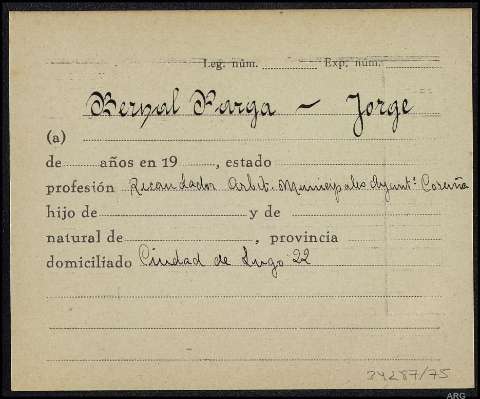 Leg. núm. Exp. núm.
Bernal Farga – Jorge
(a)
de años en 19 , estado
profesión Recaudador Arbit. Municipales Ayuntº Coruña
hijo de y de
natural de , provincia
domiciliado Ciudad de Lugo 22
34287/75
ARG